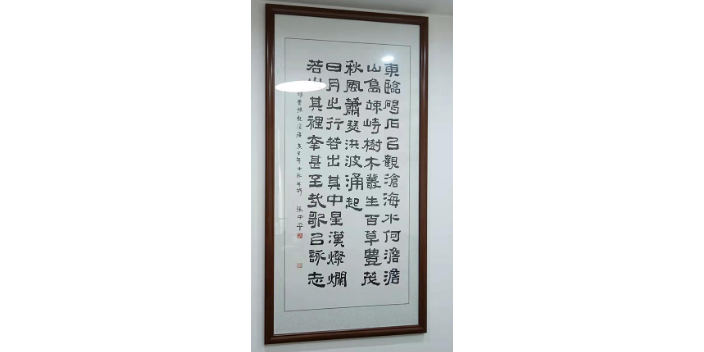 東臨碣石以觀滄海水何澹澹
山島竦峙樹木叢生百草豐茂
秋風蕭瑟洪波涌起
日月之行若出其中星漢燦爛
若出其裡幸甚至哉歌以詠志